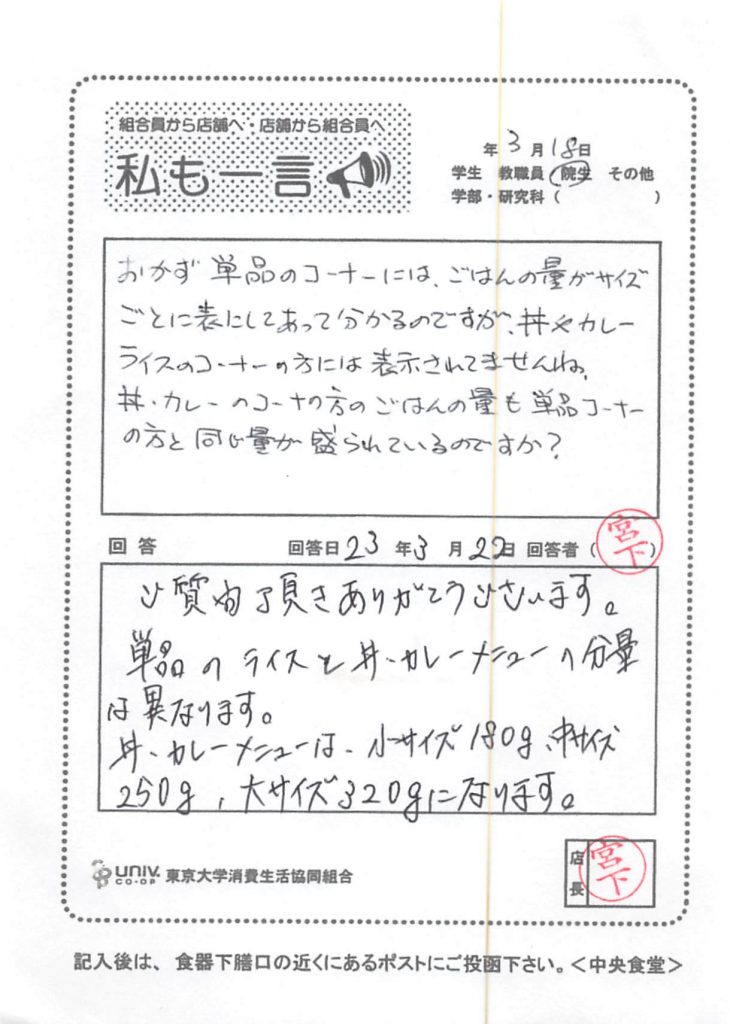 組合員から店舗へ・店舗から組合員へ
私も一言
年3月18日
学生 教職員 院生 その他
学部・研究科( )
おかず単品のコーナーには、ごはんの量がサイズ
ごとに表にしてあって分かるのですが、丼やカレー
ライスのコーナーの方には表示されてませんね。
丼・カレーのコーナーの方のごはんの量も単品コーナー
の方と同じ量が盛られているのですか?
回答 回答日23年3月22日 回答者(宮下)
ご質問頂きありがとうございます。
単品のライスと丼・カレーメニューの分量
は異なります。
丼・カレーメニューは、小サイズ180g、中サイズ
250g、大サイズ320gになります。
UNIV. CO-OP 東京大学消費生活協同組合
店長 宮下
記入後は、食器下膳口の近くにあるポストにご投函下さい。<中央食堂>